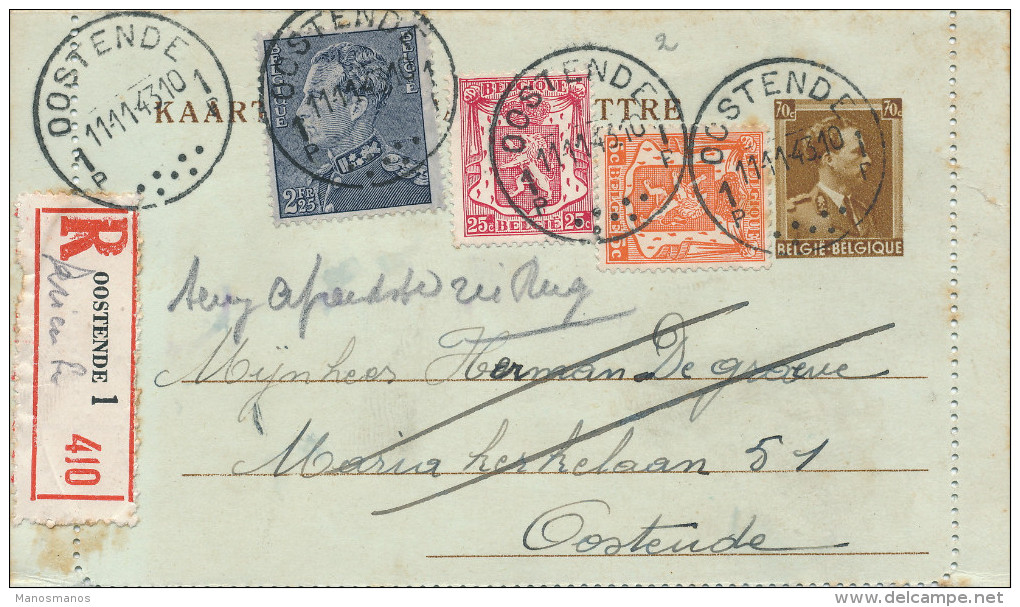 OOSTENDE 1 P 1
11-11-43.10
OOSTENDE 1 P 1
11-11-43.10
OOSTENDE 1 P 1
11-11-43.10
OOSTENDE 1 P 1
11-11-43.10
2
KAART
TTRE
BELGIE
BELGIQUE
2 FR 25
BELGIQUE
25c BELGIË 25c
BELGIË
BELGIQUE
70c 70c
BELGIË-BELGIQUE
R
OOSTENDE 1
410
Mijnheer Herman De groeve
Maria kerkelaan 51
Oostende
Manosmanos
delcampe.net